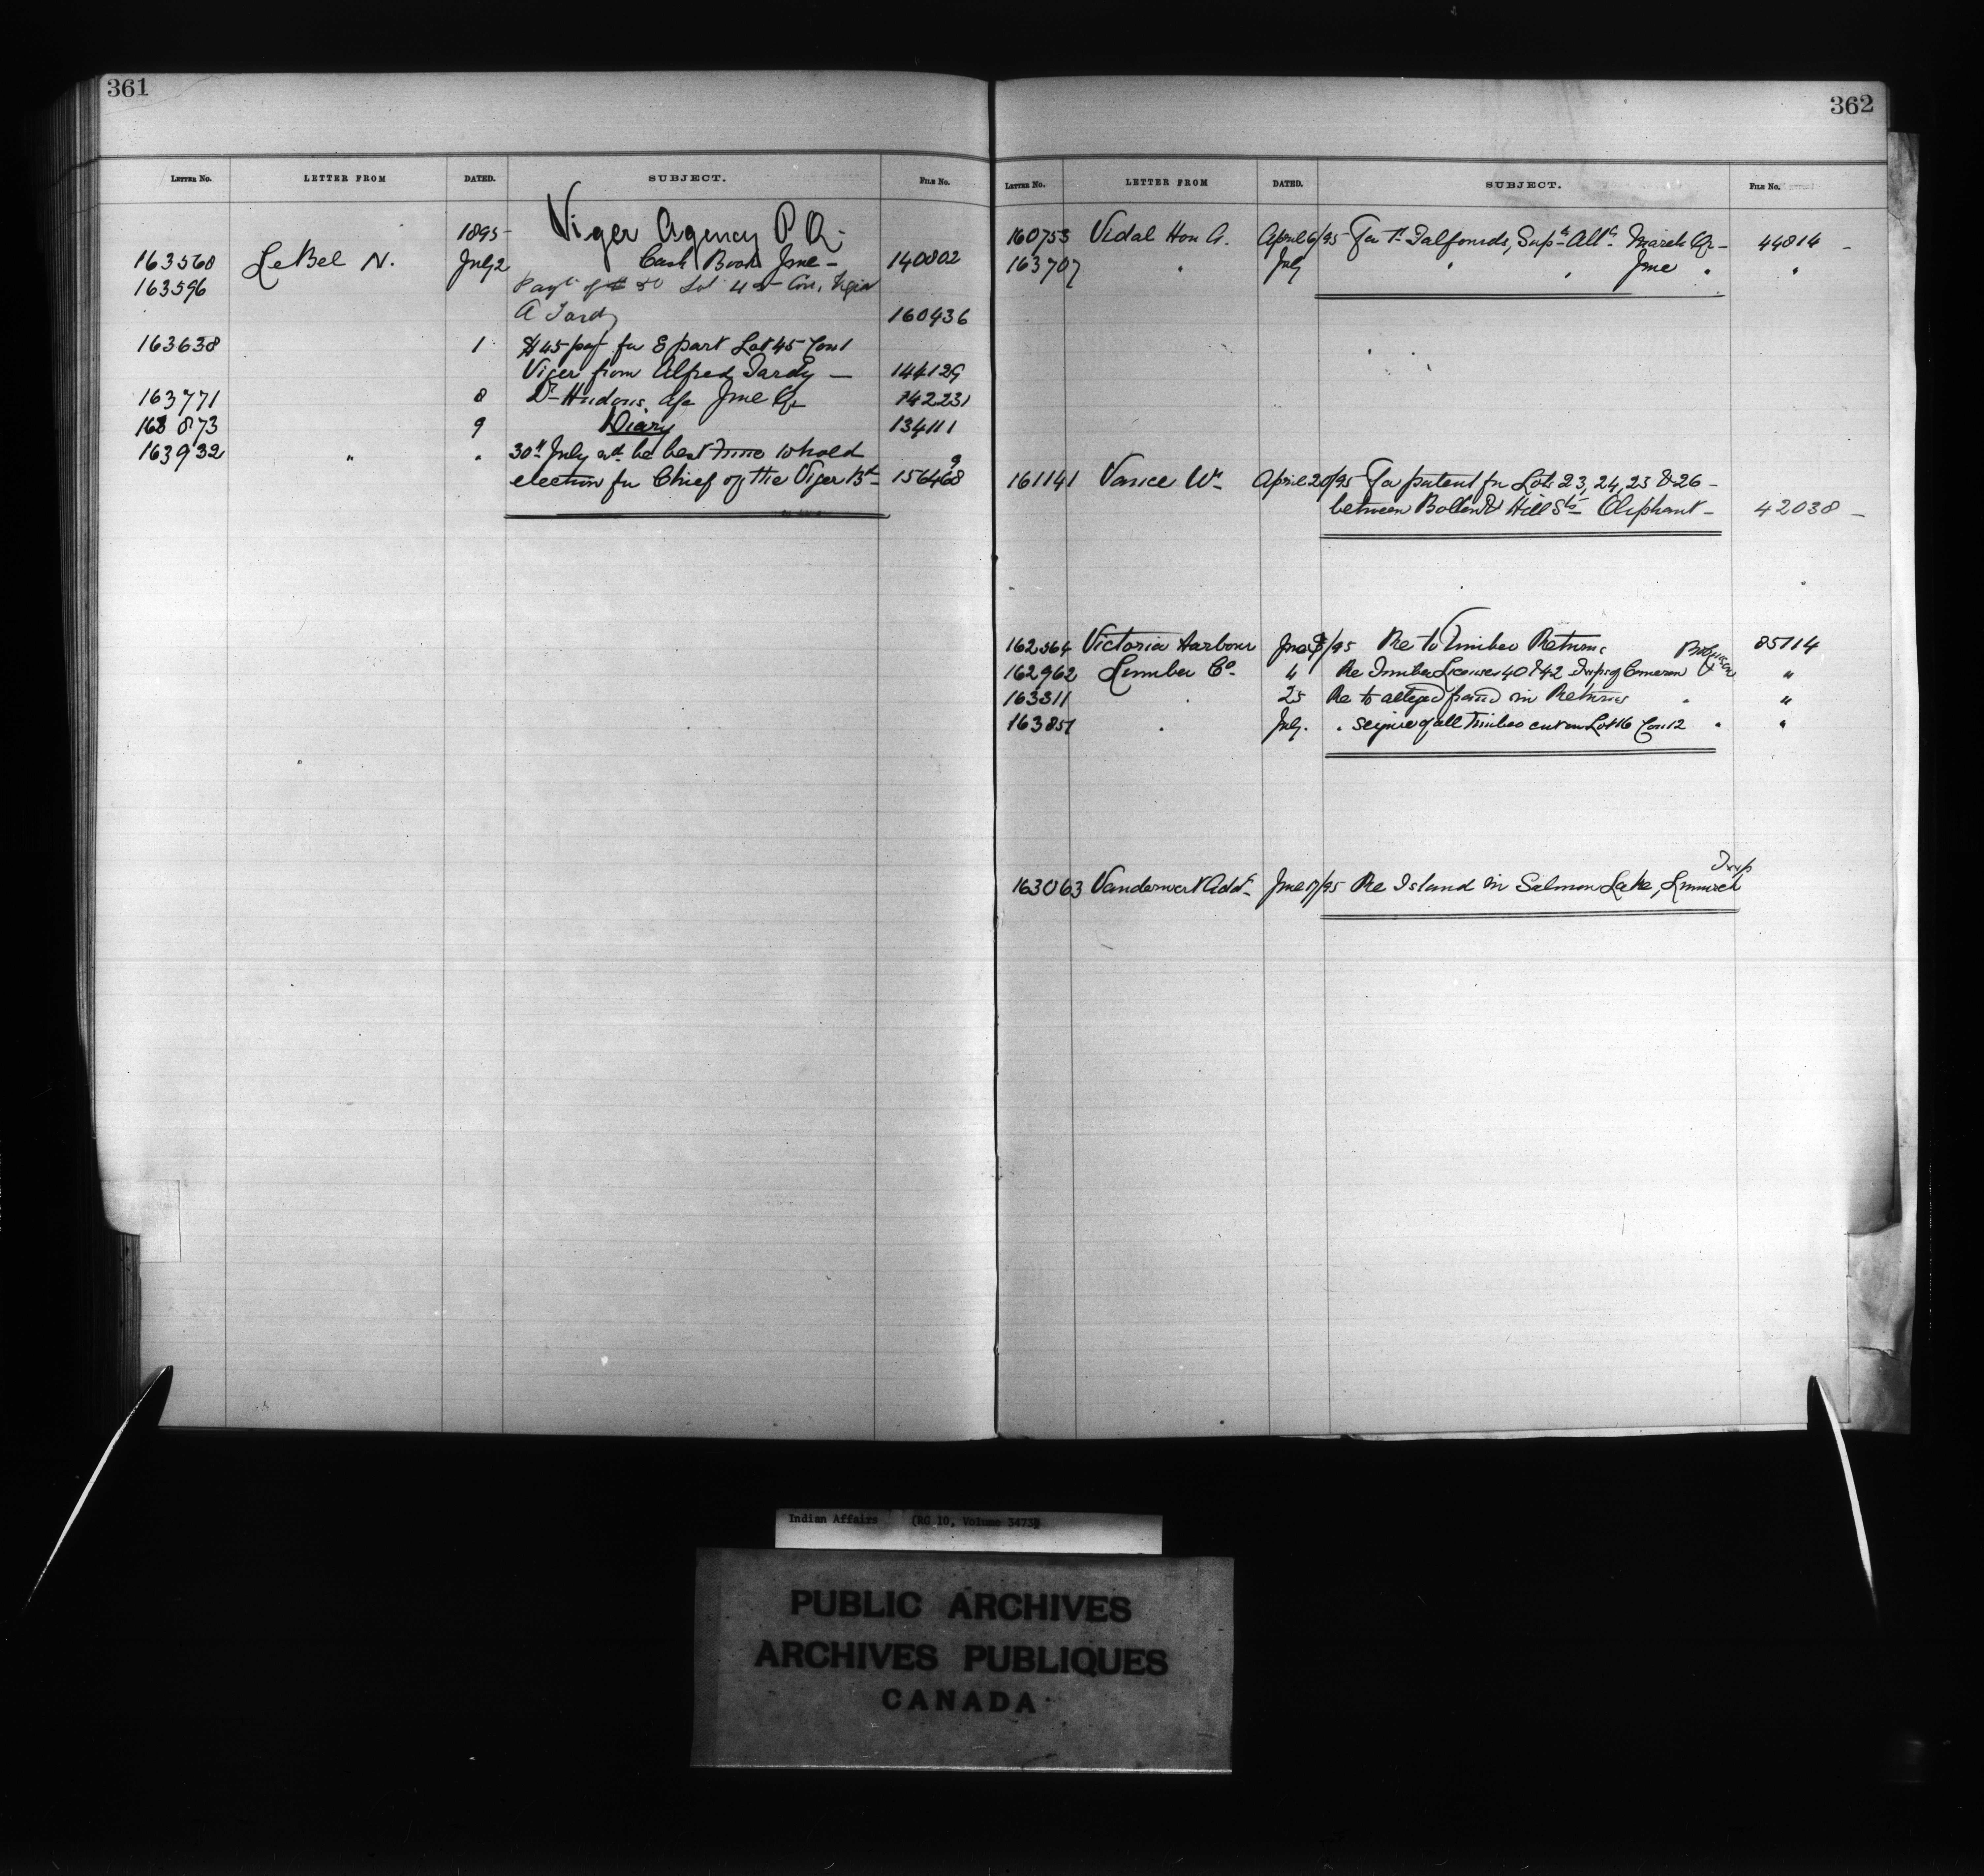 361
LETTER NO. LETTER FROM DATED. SUBJECT. FILE NO.
1895 Viger Agency P Q.
163568 LeBel N. July 2 Cash Book June - 140802
163596 Payt of $ 50 Lot 45 Con. Viger
A Tardy 160436
163638 1 $45 pay for E part Lot 45 Con 1
Viger from Alfred Tardy - 144129
163771 8 Dr Hudons a/c June Qr 142231
163873 9 Diary 134111
163932 " " 30th July wd be best time to hold
election for Chief of the Viger Bd 156468
362
LETTER NO. LETTER FROM DATED. SUBJECT. FILE NO.
160753 Vidal Hon A. April 6/95 For Talfourds, Supn Allce March Qr - 44814 -
163707 " July " " June " "
161141 Vance Wm April 20/95 For patent for Lots 23, 24, 25 & 26 -
between & Hill Sts Oliphant - 42038 -
162564 Victoria Harbour June /95 Re to Timber Returns 85114
162962 Lumber Co. " Re Timber Licenses 40 & 42 Twps of Cameron &  "
163311 " 25 Re to alleged fraud in Returns " "
163851 " July " seizure of all timber cut on Lot 16 Con 12 " "
Twp
163063 June 17/95 Re Island in Salmon Lake,
Indian Affairs (RG 10, Volume 3473)
PUBLIC ARCHIVES
ARCHIVES PUBLIQUES
CANADA